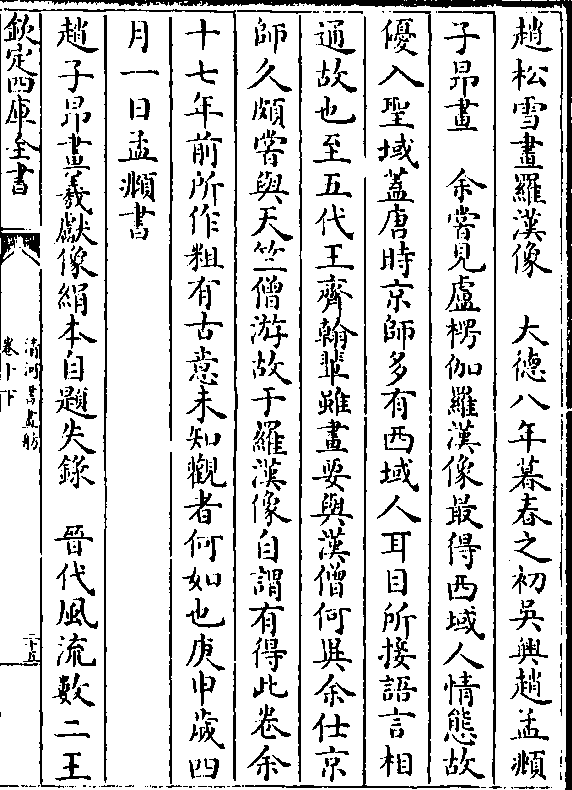 趙松雪畫羅漢像　大德八年暮春之初吳興趙孟頫
子昂畫　余嘗見盧楞伽羅漢像最得西域人情態故
優入聖域蓋唐時京師多有西域人耳目所接語言相
通故也至五代王齊翰輩雖畫要與漢僧何異余仕京
師久頗嘗與天竺僧游故于羅漢像自謂有得此卷余
十七年前所作粗有古意未知觀者何如也庚申歲四
月一日孟頫書
趙子昂畫羲獻像絹本自題失錄　晉代風流數二王
欽定四庫全書
清河書畫舫
卷十下
二十五